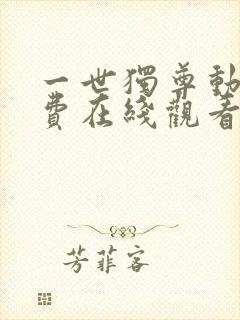 一世獨尊動
費在綫觀看
芳菲客